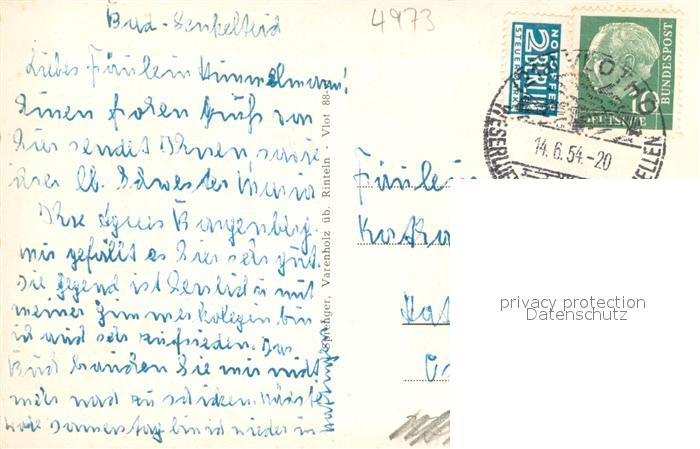 Bad-Senkelteich
4973
Liebes Fräulein Himmelmann!
Einen frohen Gruß von
hier sendet Ihnen, sowie
ihrer lb. Schwester Maria
Ihre Agnes
mir gefällt es hier sehr gut.
Die Gegend ist herrlich u. mit
meiner Zimmerkolegin bin
ich auch sehr zufrieden. Das
Buch brauchen Sie mir nicht
mehr nach zu schicken. Nächste
Woche Donnerstag bin ich wieder in
Hattingen
Sprenger, Varenholz üb. Rinteln - Vlot 88
NOTOPFER
2 BERLIN
STEUERMARKE
10
DEUTSCHE
BUNDESPOST
VLOTHO
14.6.54.-20
Fräulein
Hat
privacy protection
Datenschutz